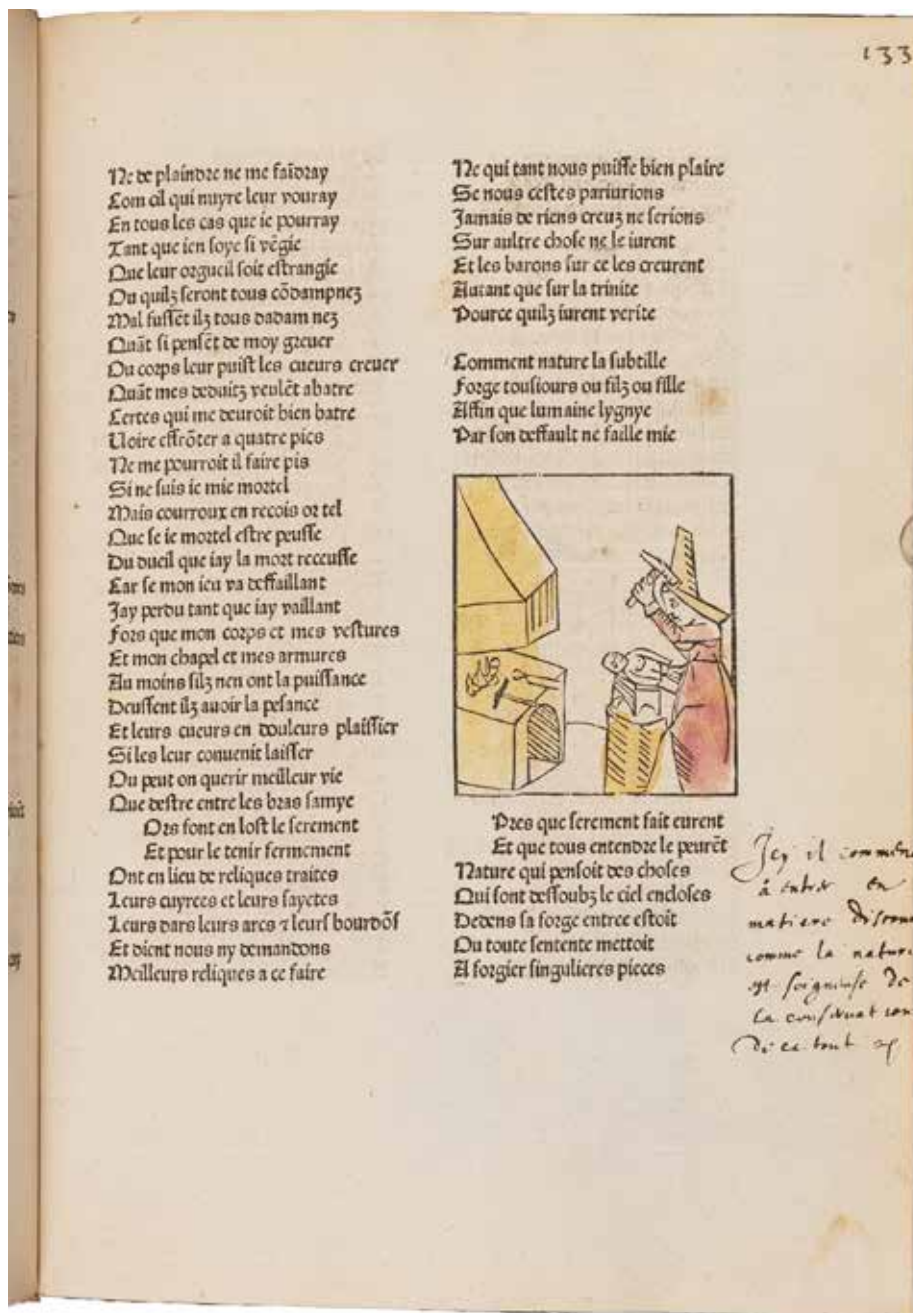 133
Ne de plaindre ne me faĩdray
Com cil qui nuyre leur vouray
En tous les cas que ie pourray
Tant que ien soye si vẽgie
Que leur orgueil soit estrangie
Ou quilz seront tous cõdampnez
Mal fussẽt ilz tous dadam nez
Quãt si pensẽt de moy greuer
Du corps leur puist les cueurs creuer
Quãt mes deduitz veulẽt abatre
Certes qui me deuroit bien batre
Uoire effrõter a quatre pics
Ne me pourroit il faire pis
Si ne suis ie mie mortel
Mais courroux en recois or tel
Que se ie mortel estre peusse
Du dueil que iay la mort receusse
Car se mon ieu va deffaillant
Jay perdu tant que iay vaillant
Fors que mon corps et mes vestures
Et mon chapel et mes armures
Au moins silz nen ont la puissance
Deussent ilz auoir la pesance
Et leurs cueurs en douleurs plaissier
Si les leur conuenit laisser
Ou peut on querir meilleur vie
Que destre entre les bras samye
Ors font en lost le serement
Et pour le tenir fermement
Ont en lieu de reliques traites
Leurs cuyrees et leurs sayetes
Leurs dars leurs arcs ⁊ leurs bourdõs
Et dient nous ny demandons
Meilleurs reliques a ce faire
Ne qui tant nous puisse bien plaire
Se nous cestes pariurions
Jamais de riens creuz ne serions
Sur aultre chose ne le iurent
Et les barons sur ce les creurent
Autant que sur la trinite
Pource quilz iurent verite
Comment nature la subtille
Forge tousiours ou filz ou fille
Affin que lumaine lygnye
Par son deffault ne faille mie
Pres que serement fait eurent
Et que tous entendre le peurẽt
Nature qui pensoit des choses
Qui sont dessoubz le ciel encloses
Dedens sa forge entree estoit
Ou toute sentente mettoit
A forgier singulieres pieces
Icy il commen
à entrer en
matiere
comme la nature
est soigneuse de
la conseruation
de ce tout